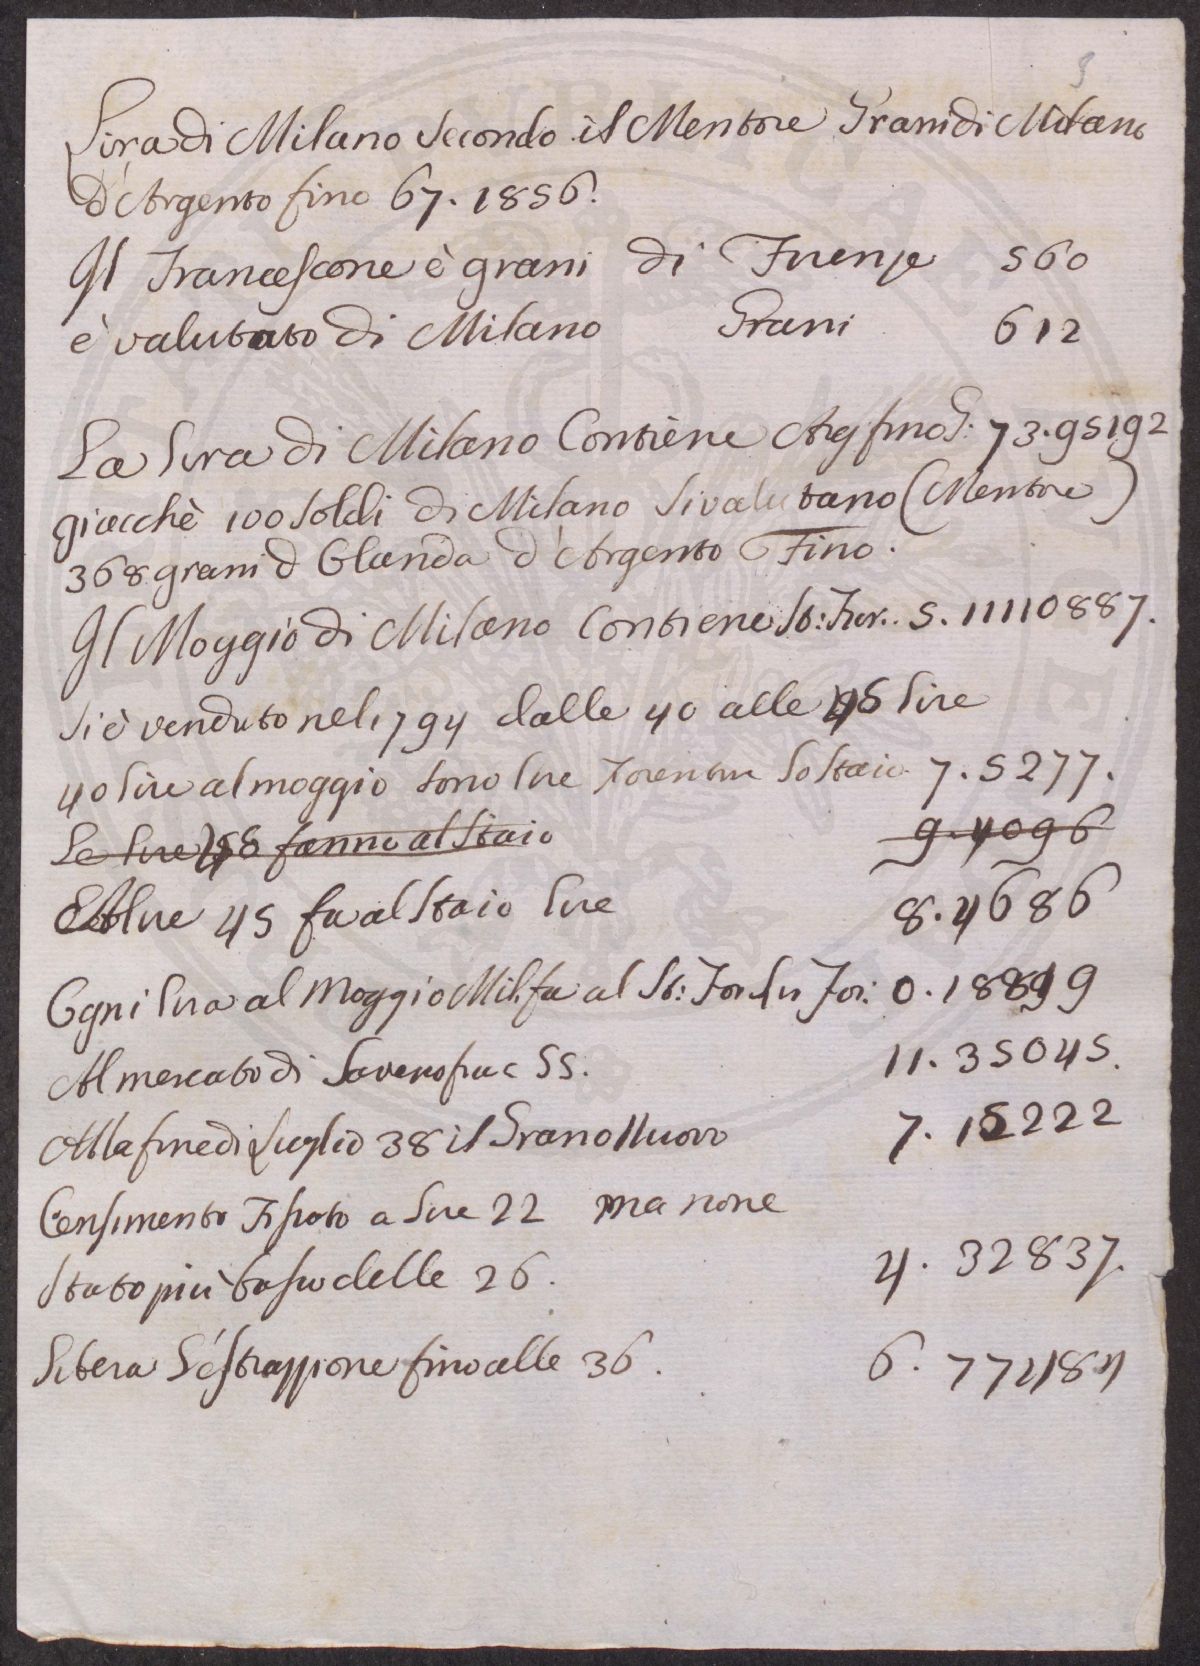 3
Lira di Milano Secondo il Mentore Grani di Milano
d'Argento fino 67.1856.
Il Francescone è grani di Firenze 560
è valutato di Milano Grani 612
La Lira di Milano Contiene Arg fino G: 73.95192
giacchè 100 Soldi di Milano Si valutano (Mentore)
368 grani d'Olanda d'Argento Fino.
Il Moggio di Milano Contiene St: Fior.. 5.11110887.
Si è venduto nel 1794 dalle 40 alle 45 lire
40 lire al moggio sono lire Fiorentine lo Staio 7.5277.
Le lire 48 fanno al Staio 9.4096
lire 45 fa al Staio lire 8.4686
Ogni lira al Moggio Mil. fa al St: Fior. Lir Fior: 0.18819
Al mercato di Saverno fra c 55. 11.35045.
Alla fine di Luglio 38 il Grano Nuovo 7.15222
Censimento Fissato a lire 22 ma non è
Stato più basso delle 26. 4.32837.
Libera l'Estrazzione fino alle 36. 6.772184